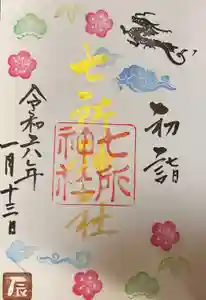 初詣
七所神社
七所神社
令和六年
一月十三日
辰